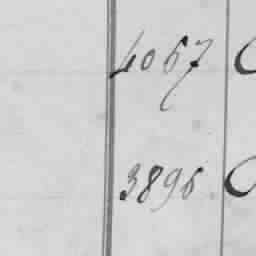 4067
3896